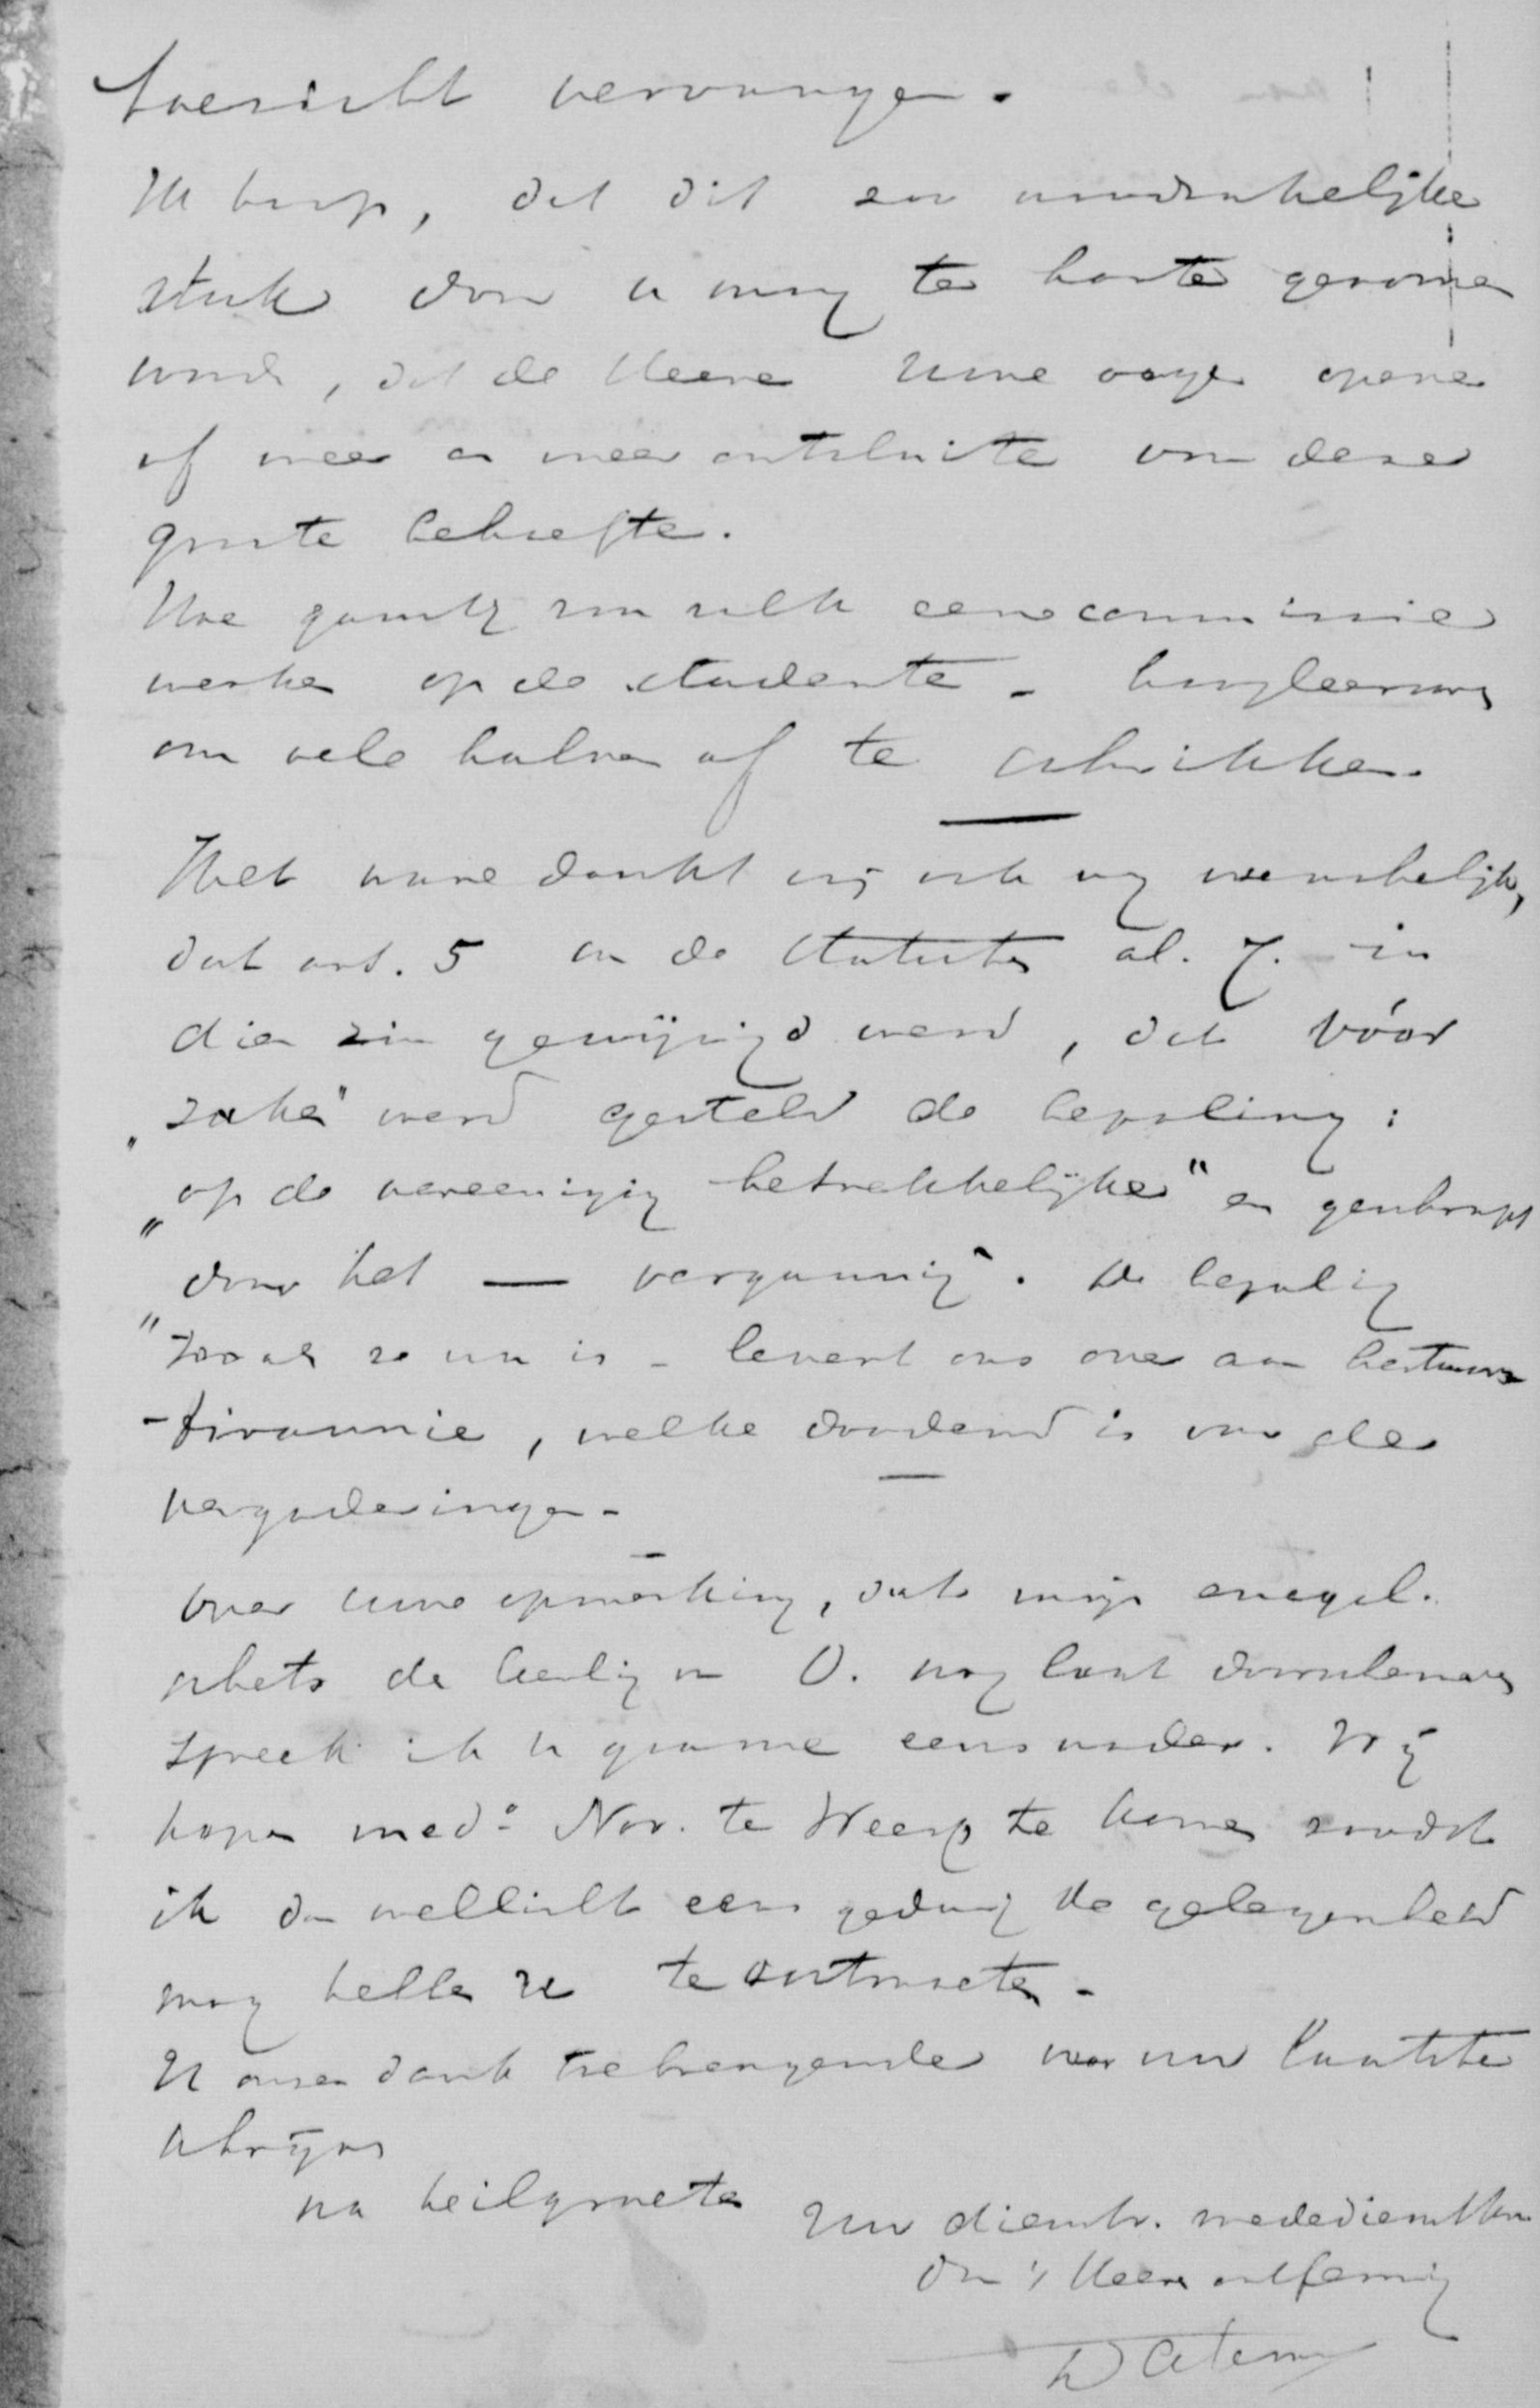 toezicht vervangen.
Ik hoop, dat dit zoo noodzakelijke
stuk door u mag ter harte genomen
word, dat de Heere Uwe oogen opene
of meer en meer ontsluite voor deze
groote behoefte.
Hoe gunstig zou zulk eene commissie
werken op de studenten - hoogleeraars
om vele halven af te schrikken.
Het ware dunkt mij ook nog wenschelijk,
dat art. 5 in de Statuten al. 7. in
dien zin gewijzigd werd, dat vóór
"zaken" werd gesteld de bepaling:
"op de vereeniging betrekkelijke" en geschrapt
"door het — vergunning". De bepaling
zooals ze nu is - levert ons over aan bestuurs
-tirannie, welke doodend is voor de
vergaderingen.
Over Uwe opmerking, dat mijn evangel.
schets de heeling in O. nog laat
spreek ik u gaarne eens nader. Wij
hopen med° Nov. te Weesp te komen zoodat
ik dan wellicht eens gedurig de gelegenheid
mag hebben U te ontmoeten.
U onzen dank toebrengende voor uw laatste
schrijven
na heilgroeten Uw dienstv. mededienstkn.
in 's Heeren ontferming